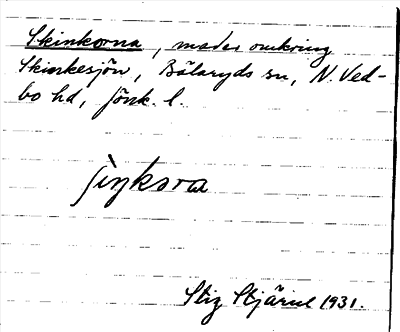 Skinkorna, mader omkring
Skinkesjön, Bälaryds sn, N. Ved-
bo hd, Jönk. l.
Stig Stjärne 1931.